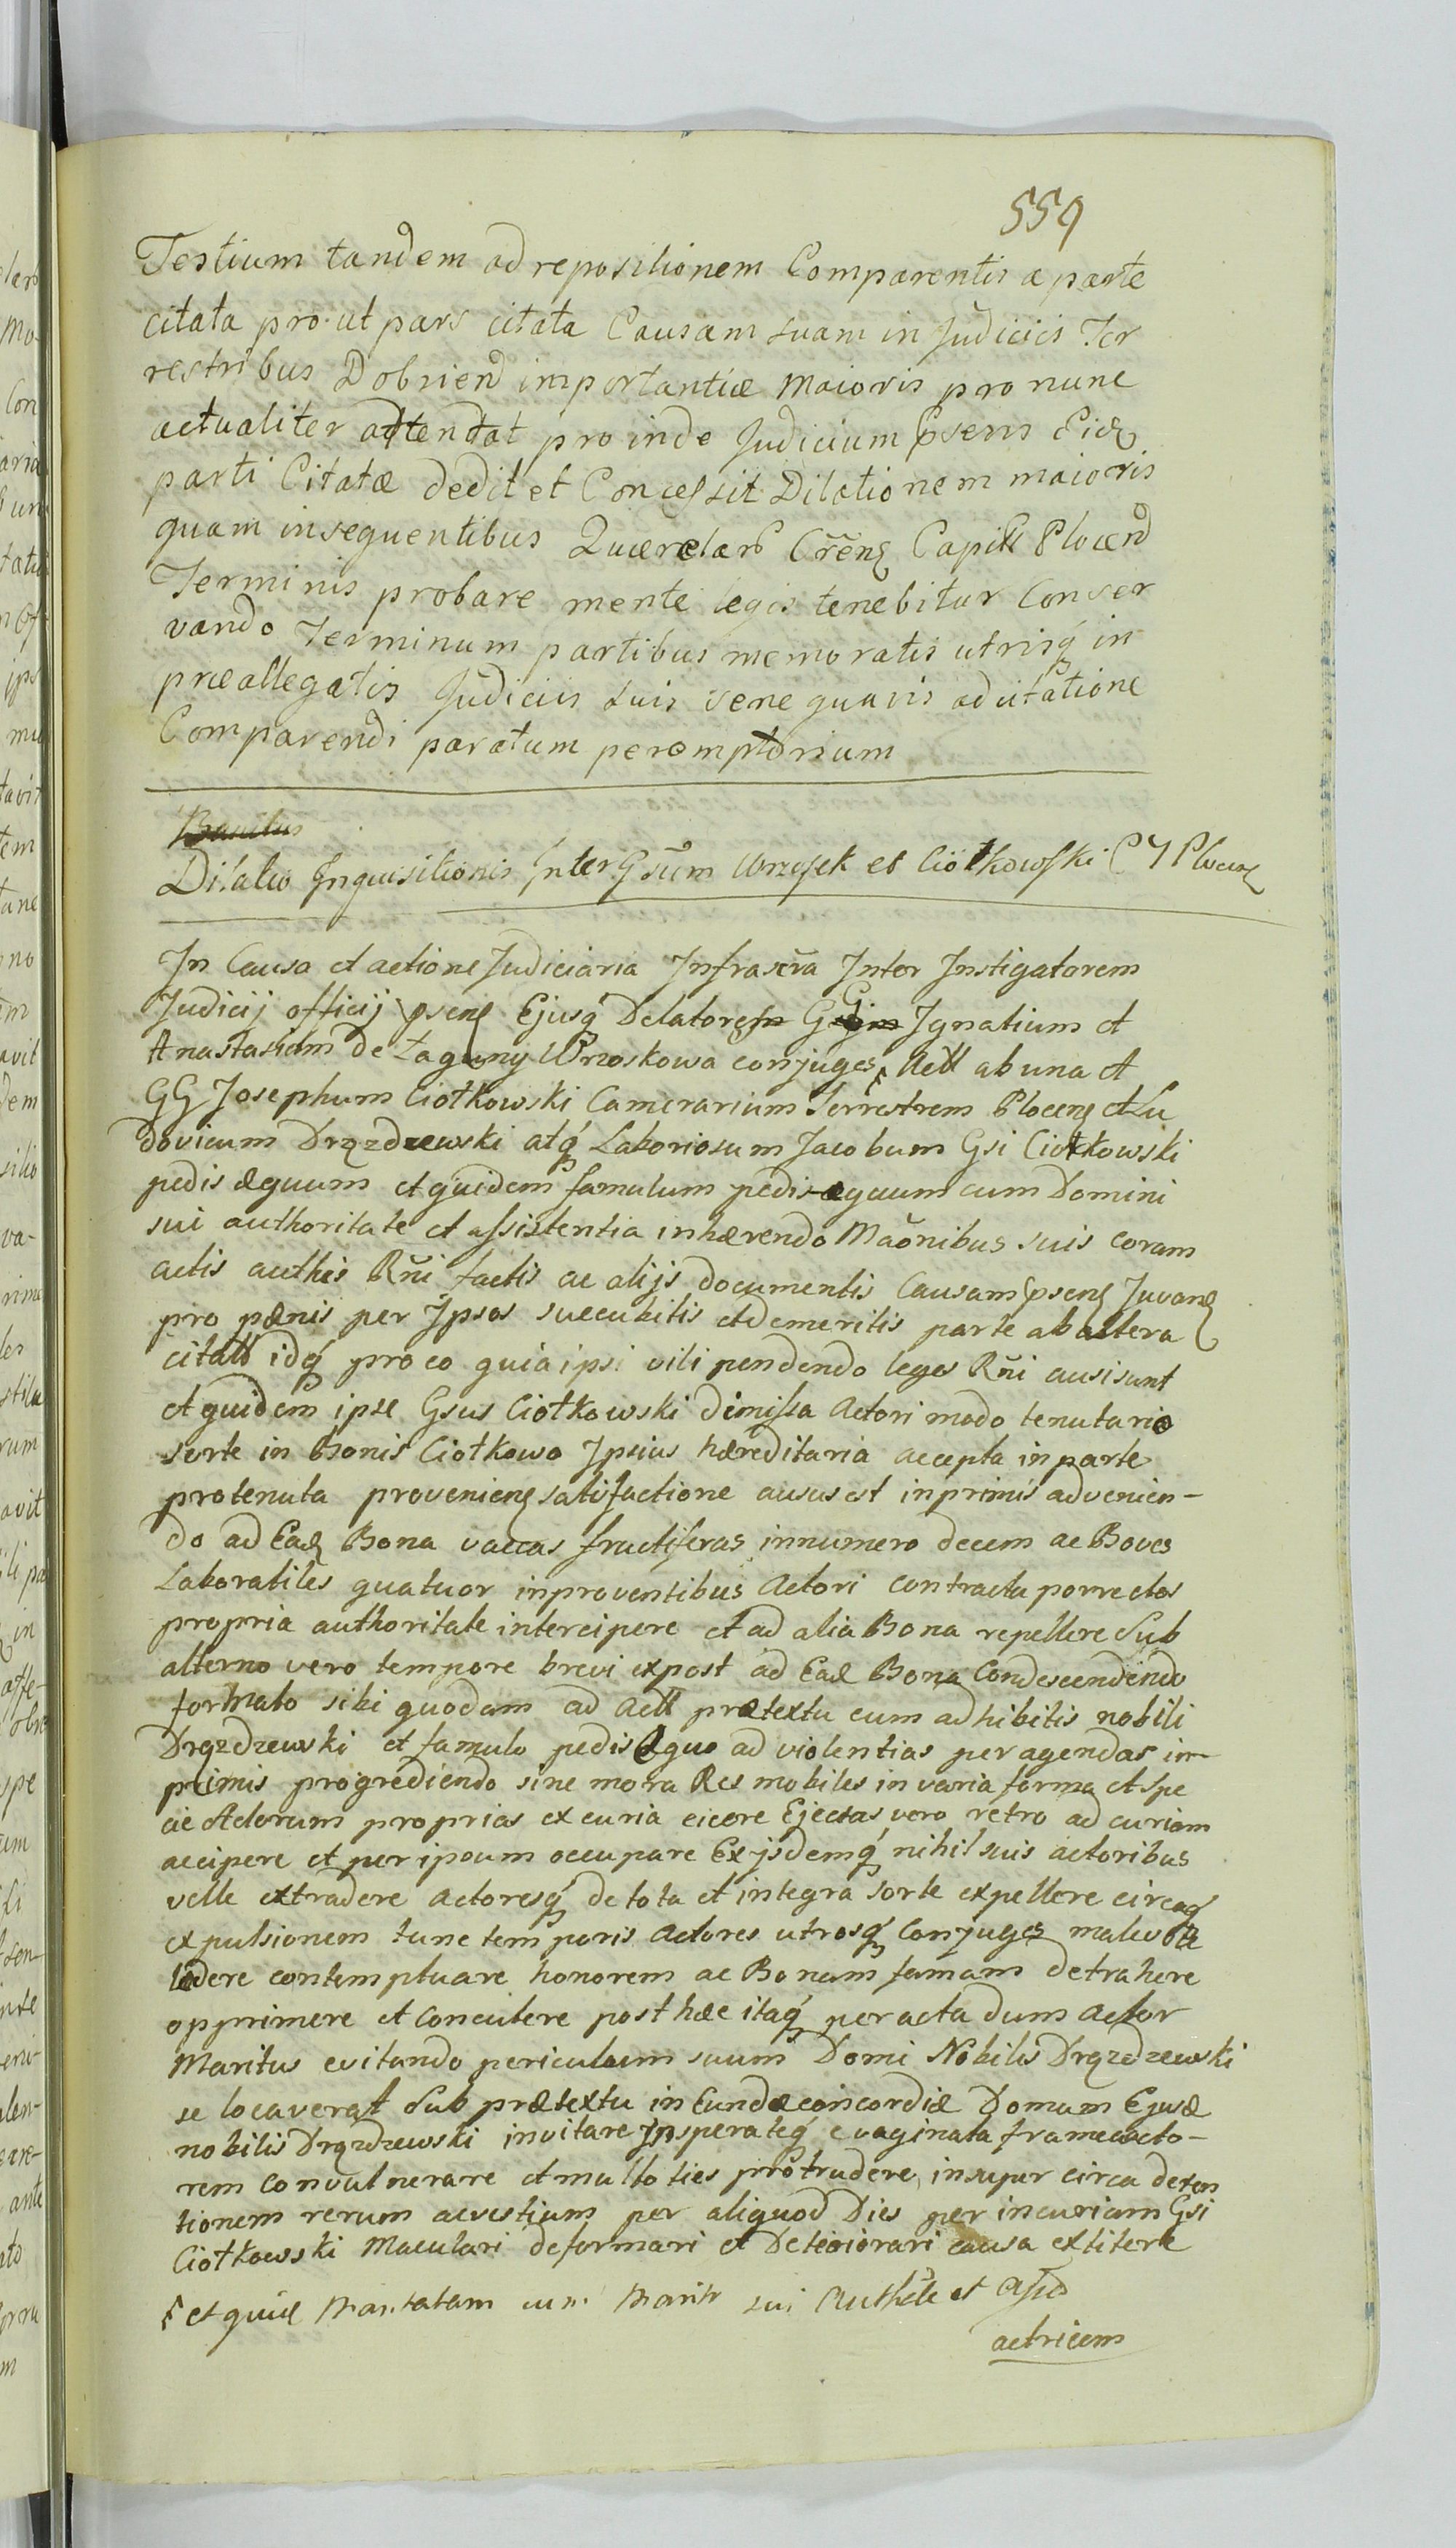 559
Testium tandem ad repositionem Comparentis a parte
citata pro-ut pars citata Causam suam in Judiciis Ter
restribus Dobrien importantiæ Maioris pro nunc
actualiter attendat proinde Judicium psens Eid
parti Citatæ dedit et Concessit Dilationem maioris
quam in sequentibus Quærelar Crēn Capit Plocen
Terminis probare mente legis tenebitur Conser
vando Terminum partibus memoratis utrisq́ in
præallegatis Judiciis suis sene quavis adcitatione
Comparendi paratum peremptorium
Dilatio Inquisitionis Inter Gsūm Wrzosek et Ciołkowski C Plocen
In Causa et actione Judiciaria Infrascr̄a Inter Instigatorem
Judicij officij psen Ejusq́ Delatores GG Ignatium et
Anastasiam de Łaguny Wrzoskowa conjuges Act ab una et
GG Josephum Ciołkowski Camerarium Terrestrem Plocen et Lu
dovicum Drązdzewski atq́ Laboriosum Jacobum Gsi Ciołkowski
pedisæquum et quidem famulum pedisæquum cum Domini
sui authoritate et assistentia inhærendo Māonibus suis coram
actis authis Rn̄i factis ac alijs documentis Causam psen Juvan
pro pænis per Ipsos succubitis et demeritis parte ab altera
citatt idq́ pro eo quia ipsi vili pendendo leges Rn̄i ausi sunt
et quidem ipse Gsus Ciołkowski dimissa Actori modo tenutario
sorte in Bonis Ciołkowo Ipsius hæreditaria accepta in parte
pro tenuta provenien satisfactione ausus est inprimis advenien-
do ad Ead Bona vaccas fructiferas in numero decem ac Boves
Laborabiles quatuor in proventibus Actori contractu porrectos
propria authoritate intercipere et ad alia Bona repellere Sub
alterno vero tempore brevi expost ad Ead Bona Condescendendo
formato sibi quodam ad Act prætextu cum adhibitis nobili
Drązdzewski et famulo pedisæquo ad violentias peragendas in-
primis progrediendo sine mora Res mobiles in varia forma et spe
cie Actorum proprias ex curia eicere Ejectas vero retro ad curiam
accipere et per ipsum occupare Ex ijsdemq́ nihil suis actoribus
velle extradere actoresq́ de tota et integra sorte expellere circaq́
expulsionem tunc temporis Actores utrosq́ Conjuges male
lædere contemptuare honorem ac Bonam famam detrahere
opprimere et concutere post hæc itaq́ peracta dum actor
Maritus evitando periculum suum Domi Nobilis Drązdzewski
se locaverat Sub prætextu in Eundæ concordiæ Domum Ejusd
nobilis Drązdzewski invitare Insperateq́ evaginata framea acto-
rem convulnerare et multoties protrudere, insuper circa deten
tionem rerum ac vestium per aliquod Dies per incuriam Gsi
Ciołkowski Maculari deformari et Deteriorari causa extitere
et quid Maritatam cum Marit sui Authte et Assa
actricem